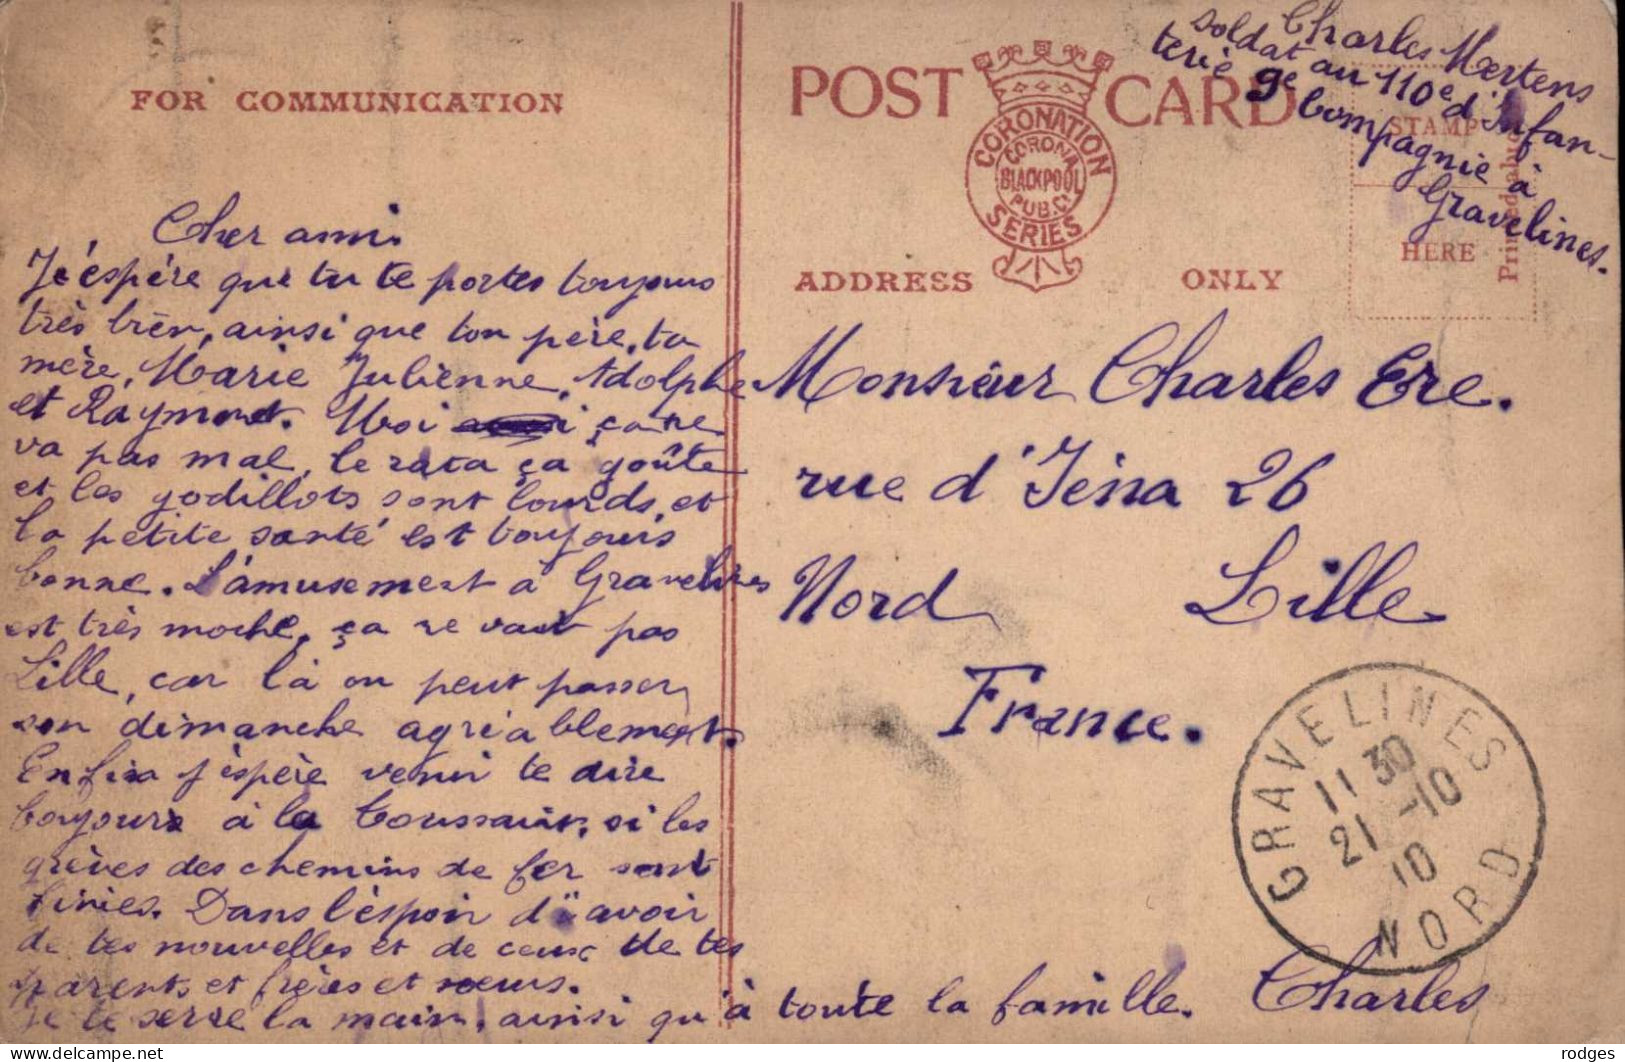 FOR COMMUNICATION
Cher ami
J'éspére que tu te portes toujours
très bien, ainsi que ton père, ta
mère, Marie Julienne, Adolphe
et Raymond. Moi ça ne
va pas mal, le rata ça goûte
et les godillots sont lourds, et
la petite santé est toujours
bonne. L'amusement à Gravelines
est très moche, ça ne vaut pas
Lille, car là on peut passer
son dimanche agriablement.
Enfin j'éspère venir te dire
bonjours à la Toussaint, si les
grèves des chemins de fer sont
finies. Dans l'éspoir d'avoir
de tes nouvelles et de ceux de tes
parents et frères et sœurs.
Je te serre la main, ainsi qu'à toute la famille. Charles
POST CARD
CORONATION
CORONA
BLACKPOOL
PUB. Cº
SERIES
ADDRESS ONLY
STAMP
HERE
Printed abroad
Charles Mertens
soldat au 110e d'Infan-
terie 9e Compagnie à
Gravelines.
Monsieur Charles Ere.
rue d'Iéna 26
Nord Lille
France.
GRAVELINES
11 30
21 -10
10
NORD
rodges
delcampe.net